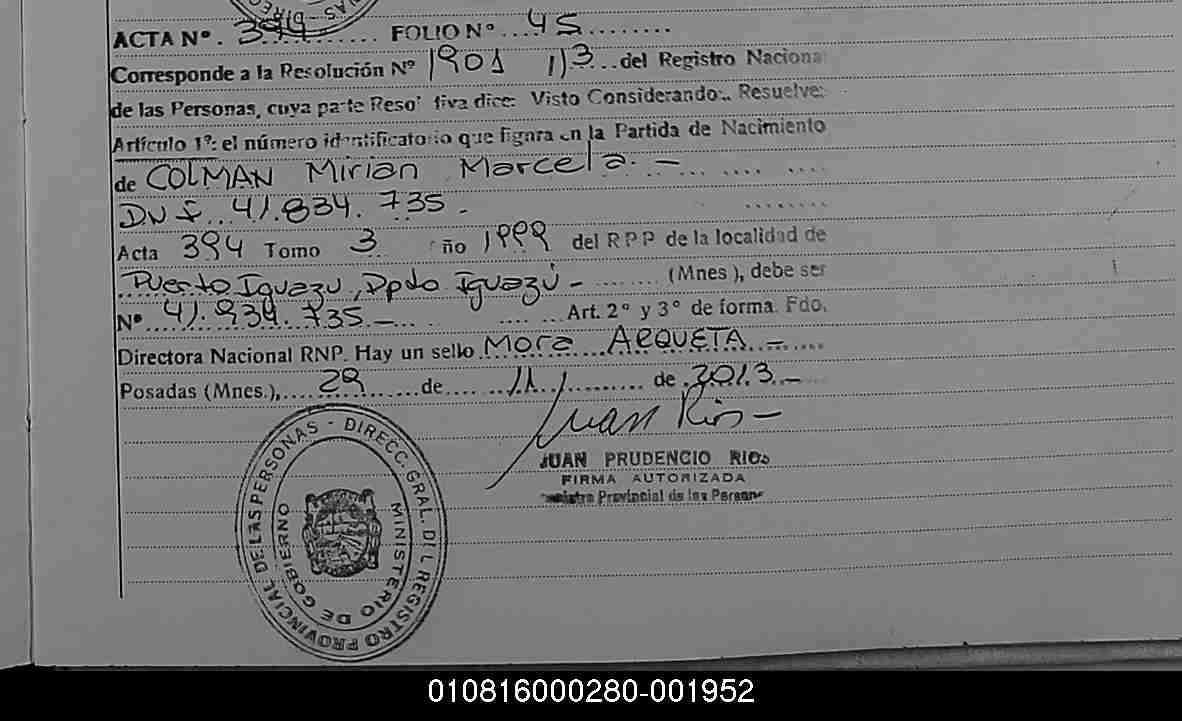 ACTA Nº. 3949 FOLIO Nº 45
Corresponde a la Resolución Nº 1901 1/3 del Registro Naciona
de las Personas, cuya parte Reso' tiva dice: Visto Considerando:.. Resuelve:
Artículo 1º: el número identificatorio que figura en la Partida de Nacimiento
de COLMAN Mirian Marcela. -
DNI 41.834.735.
Acta 394 Tomo 3 ño 1999 del RPP de la localidad de
Puerto Iguazu, Dpto Iguazú - (Mnes), debe ser
Nº 41.934.735.- Art. 2º y 3º de forma. Fdo.
Directora Nacional RNP. Hay un sello Mora ARQUETA.-
Posadas (Mnes.), 29 de 11 de 2013.-
Juan Rios -
JUAN PRUDENCIO RIOS
FIRMA AUTORIZADA
Registro Provincial de las Personas
DIRECC. GRAL. DEL REGISTRO PROVINCIAL DE LAS PERSONAS -
MINISTERIO DE GOBIERNO
010816000280-001952